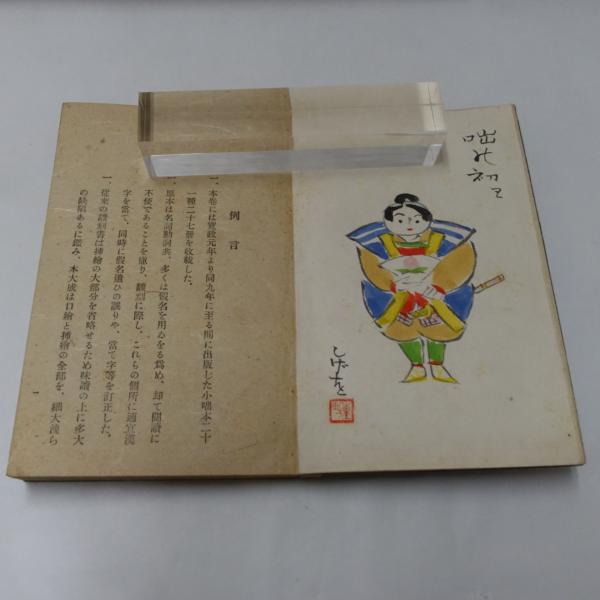 咄の初り
しげを
例言
一、本卷には寛政元年より同九年に至る間に出版した小咄本二十
一種二十七册を收載した。
一、原本は名詞動詞共、多くは假名を用ゐをる爲め、却て閲讀に
不便であることを慮り、飜刻に際し、これらの個所に適宜漢
字を當て、同時に假名遣ひの誤りや、當て字等を訂正した。
一、從來の飜刻書は挿繪の大部分を省略せるため味讀の上に多大
の缺陷あるに鑑み、本大成は口繪と挿繪の全部を、細大洩ら